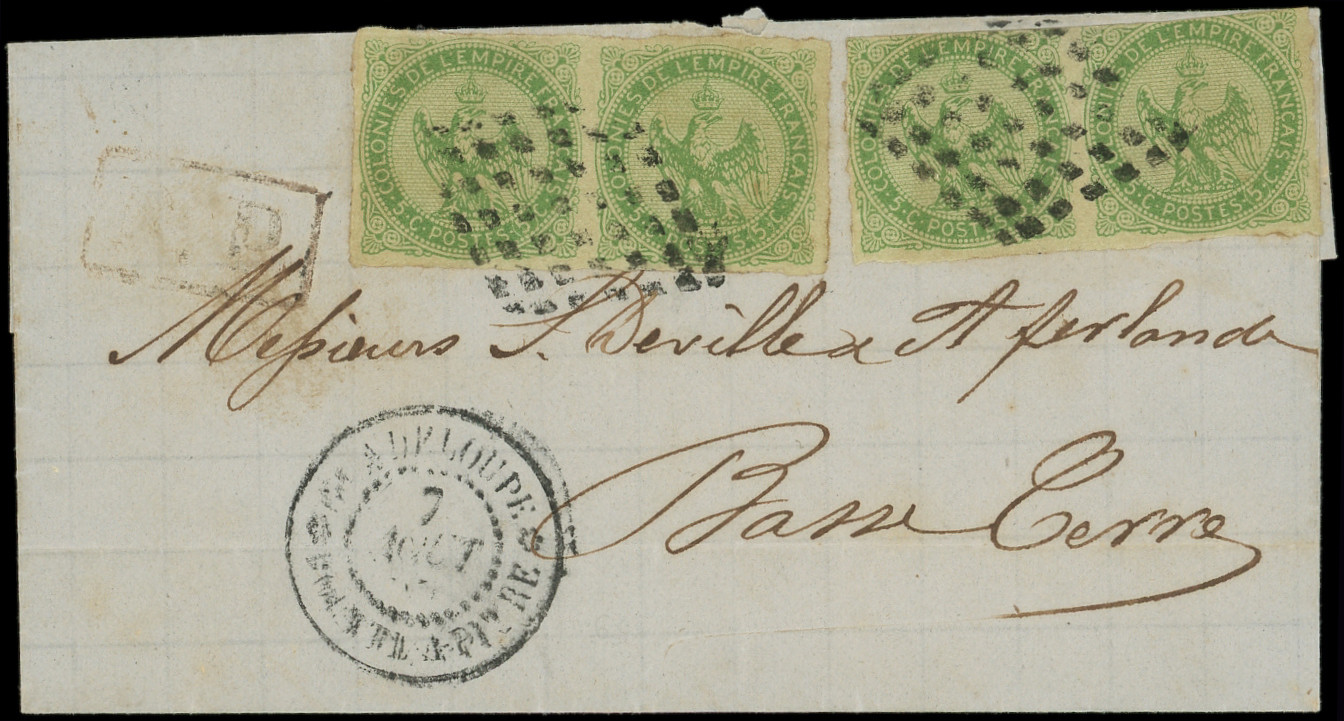 COLONIES DE L'EMPIRE FRANÇAIS · 5·C· POSTES·5·C·
COLONIES DE L'EMPIRE FRANÇAIS · 5·C· POSTES·5·C·
COLONIES DE L'EMPIRE FRANÇAIS · 5·C· POSTES·5·C·
COLONIES DE L'EMPIRE FRANÇAIS · 5·C· POSTES·5·C·
P
Messieurs S. Deville & A ferlande
Basse Terre
GUADELOUPE
7
AOUT
POINTE-A-PITRE